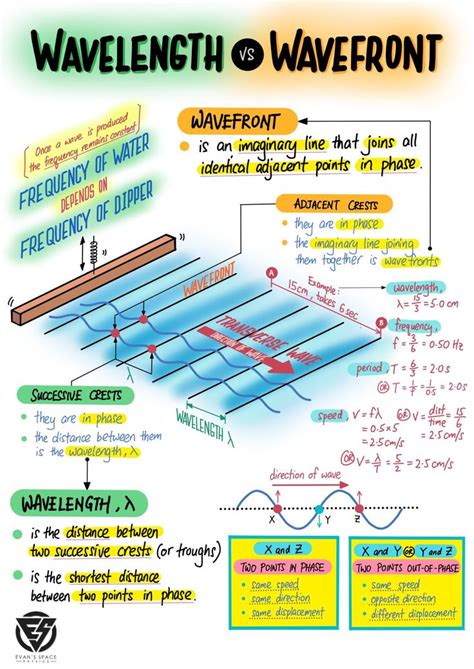 WAVELENGTH VS WAVEFRONT
Once a wave is produced
the frequency remains constant
FREQUENCY OF WATER
DEPENDS ON
FREQUENCY OF DIPPER
WAVEFRONT
is an imaginary line that joins all
identical adjacent points in phase.
ADJACENT CRESTS
they are in phase
the imaginary line joining
them together is wavefronts
WAVEFRONT
A
Example:
15cm, takes 6 sec
B
TRANSVERSE WAVE
DIRECTION OF WAVE
WAVELENGTH λ
wavelength,
λ = 15/3 = 5.0 cm
frequency,
f = 3/6 = 0.50 Hz
period, T = 6/3 = 2.0 s
OR T = 1/f = 1/0.5 = 2.0s
speed, v = fλ
= 0.5 x 5
= 2.5 cm/s
OR v = dist/time = 15/6
= 2.5 cm/s
OR v = λ/T = 5/2 = 2.5 cm/s
SUCCESSIVE CRESTS
they are in phase
the distance between them
is the wavelength, λ
WAVELENGTH, λ
is the distance between
two successive crests (or troughs)
is the shortest distance
between two points in phase.
direction of wave
X Y Z
X and Z
TWO POINTS IN PHASE
same speed
same direction
same displacement
X and Y OR Y and Z
TWO POINTS OUT-OF-PHASE
same speed
opposite direction
different displacement
EVAN'S SPACE
PHYSICS